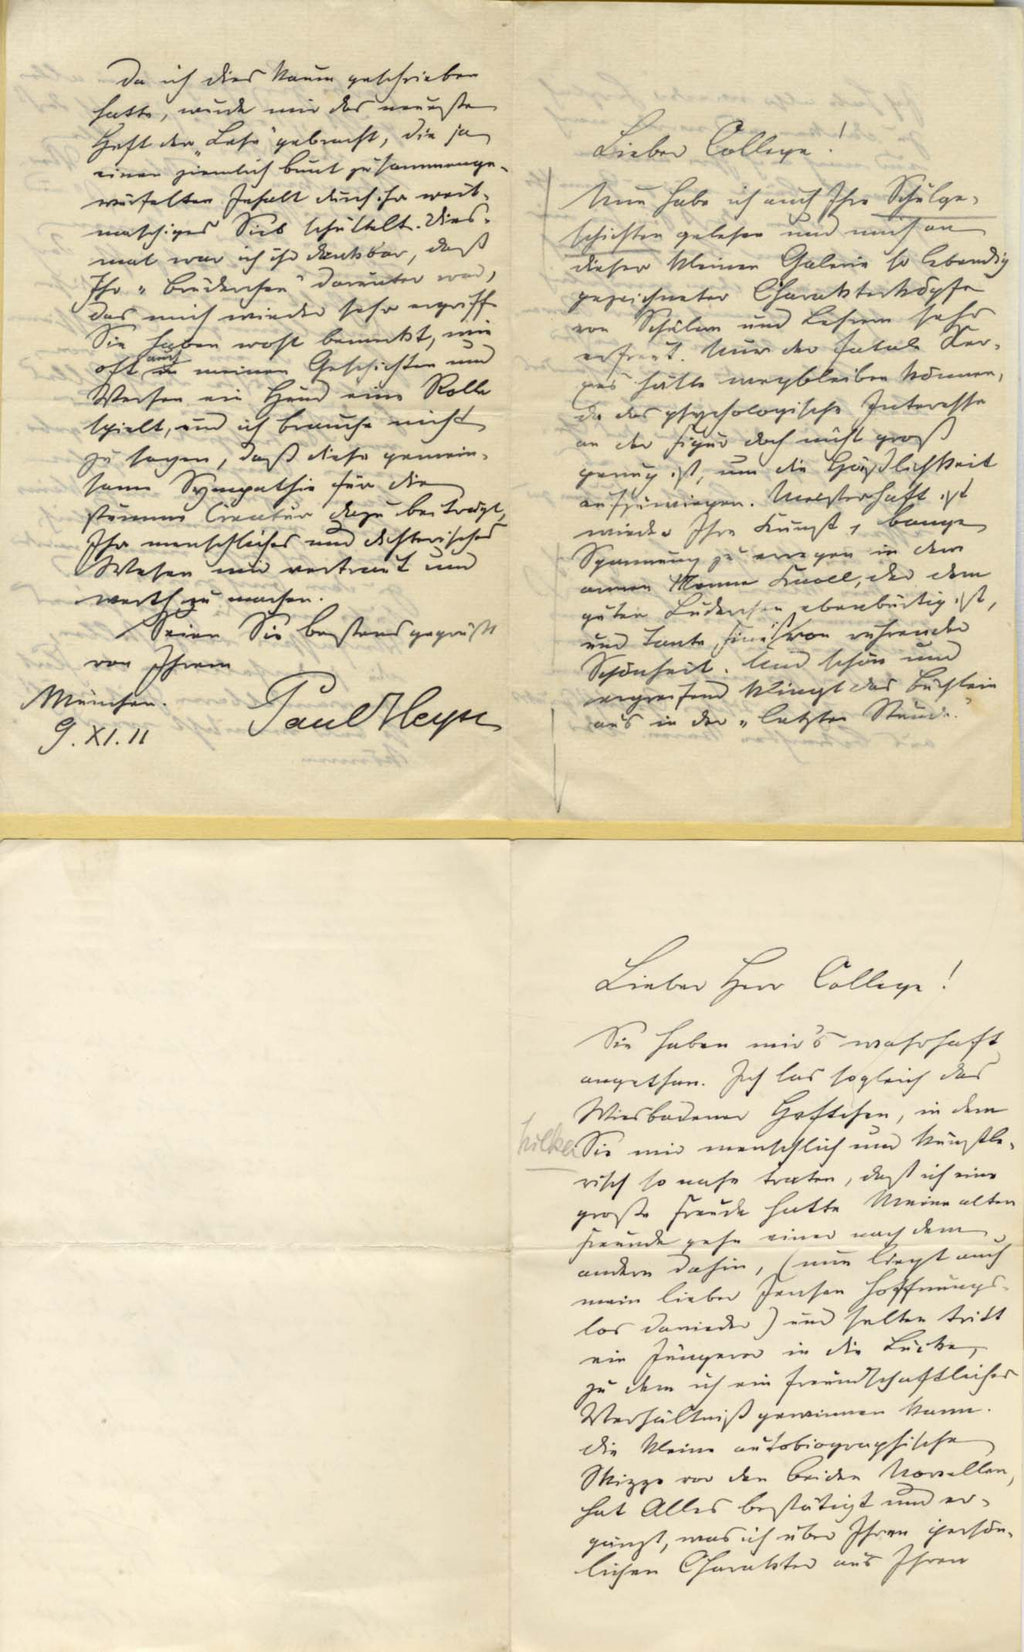 Lieber College!
Nun habe ich auch Ihre Schulge-
schichten gelesen und mich an
dieser kleinen Galerie so lebendig
gezeichneter Charakterköpfe
von Schülern und Lehrern sehr
erfreut. Nur der fatale
hätte wegbleiben können,
da das psychologische Interesse
an der Figur doch nicht groß
genug ist, um die Häßlichkeit
aufzuwiegen. Meisterhaft ist
wieder Ihre Kunst, bange
Spannung zu erregen in dem
armen Manne Knoll, der dem
guten Brüderchen ebenbürtig ist,
und Tante von rührender
Schönheit. Und schön und
ergreifend klingt das Büchlein
aus in der „letzten Stunde."
Da ich dies kaum geschrieben
hatte, wurde mir das neueste
Heft der „Lese" gebracht, die ja
einen ziemlich bunt zusammenge-
würfelten Inhalt durch ihr weit-
maschiges Sieb schüttelt. Dies-
mal war ich ihr dankbar, daß
Ihr „Brüderchen" darunter war,
das mich wieder sehr ergriff.
Sie haben wohl bemerkt, wie
oft auch in meinen Geschichten und
Versen ein Hund eine Rolle
spielt, und ich brauche nicht
zu sagen, daß diese gemein-
same Sympathie für die
stumme Creatur dazu beiträgt,
Ihr menschliches und dichterisches
Wesen mir vertraut und
werth zu machen.
Seien Sie bestens gegrüßt
von Ihrem
München.
9. XI. 11
Paul Heyse
Lieber Herr College!
Sie haben mir's wahrhaft
angethan. Ich las sogleich das
Wiesbadener Heftchen, in dem
Sie mir menschlich und künstle-
risch so nahe traten, daß ich eine
große Freude hatte. Meine alten
Freunde gehn einer nach dem
andern dahin, (nun liegt auch
mein lieber Jensen hoffnungs-
los danieder) und selten tritt
ein Jüngerer in die Lücke,
zu dem ich ein freundschaftliches
Verhältniß gewinnen kann.
Die kleine autobiographische
Skizze vor den beiden Novellen,
hat Alles bestätigt und er-
gänzt, was ich über Ihren persön-
lichen Charakter aus Ihren